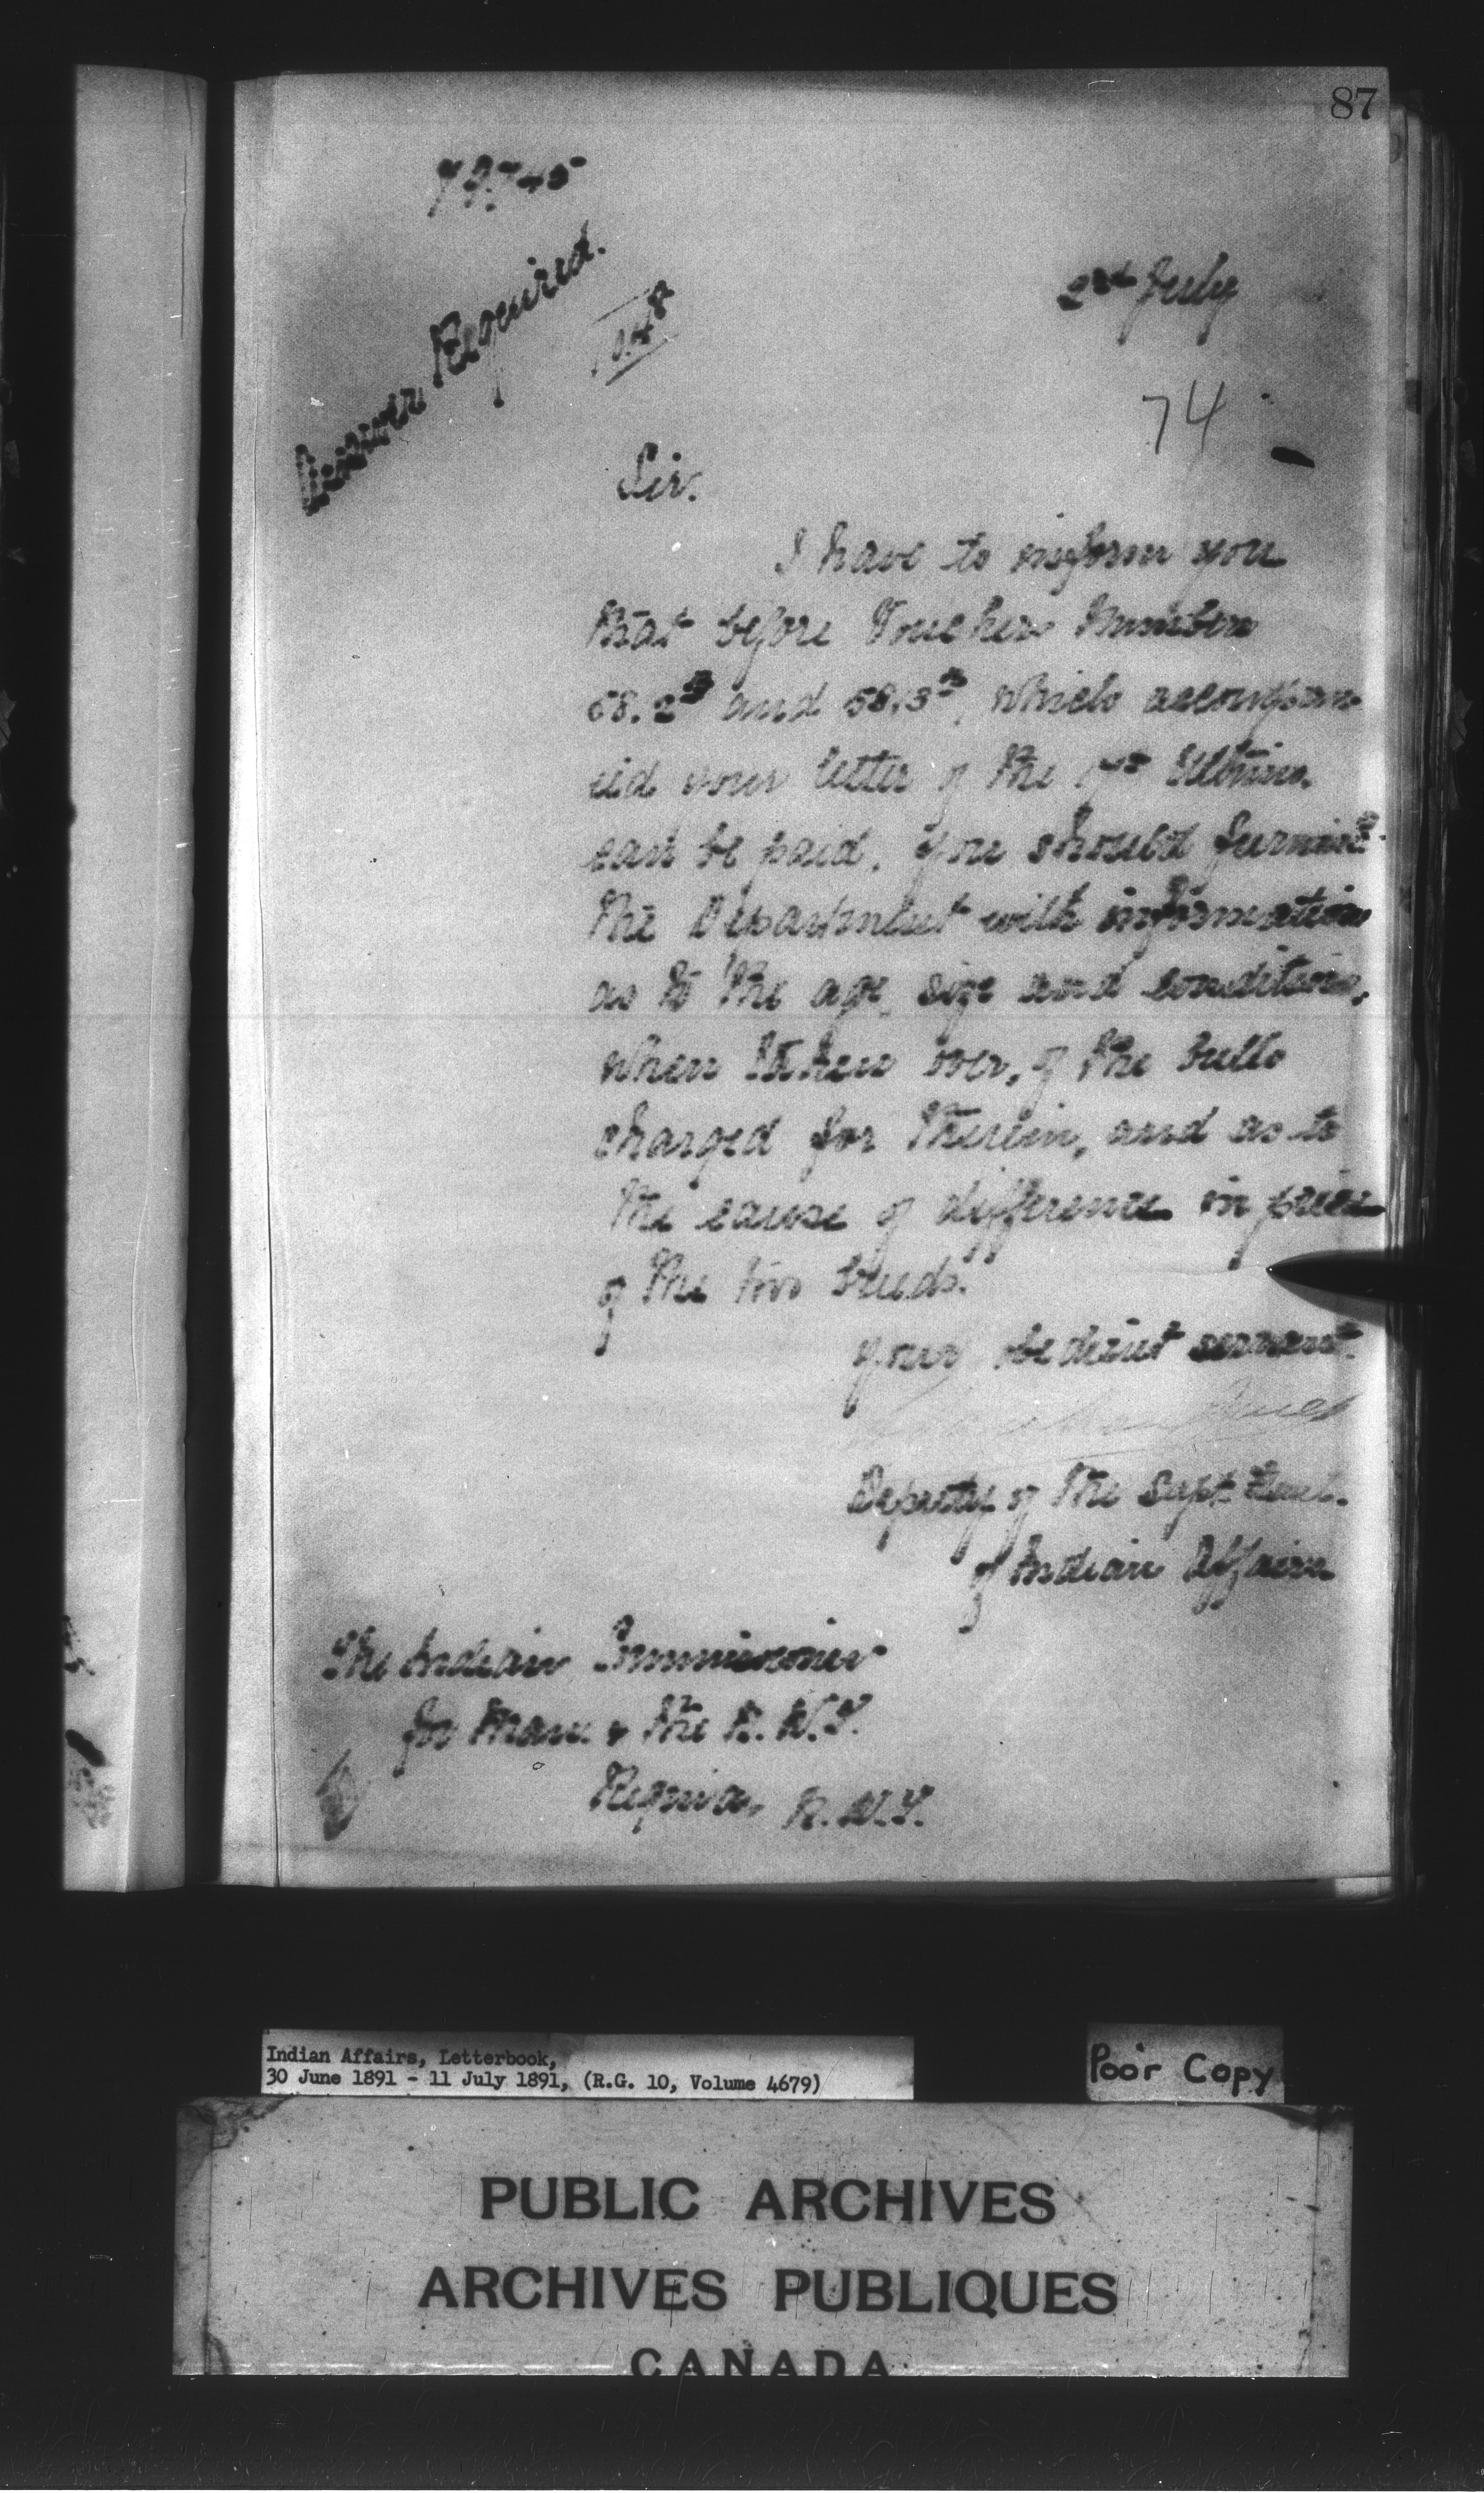 87
2nd July
Answer Required.
74
Sir.
I have to inform you
that before Vouchers Numbers
and which accompan-
ied your letter of the Ultimo.
can be paid, you should furnish
the Department with information
as to the age, size and condition,
when taken over, of the bulls
charged for therein, and as to
the cause of difference in price
of the two breeds.
Your obedient servant.
Deputy of the Supt. Genl.
of Indian Affairs
The Indian Commissioner
for Man. & the N. W. T.
Regina, N. W. T.
Indian Affairs, Letterbook,
30 June 1891 - 11 July 1891, (R.G. 10, Volume 4679)
Poor Copy
PUBLIC ARCHIVES
ARCHIVES PUBLIQUES
CANADA